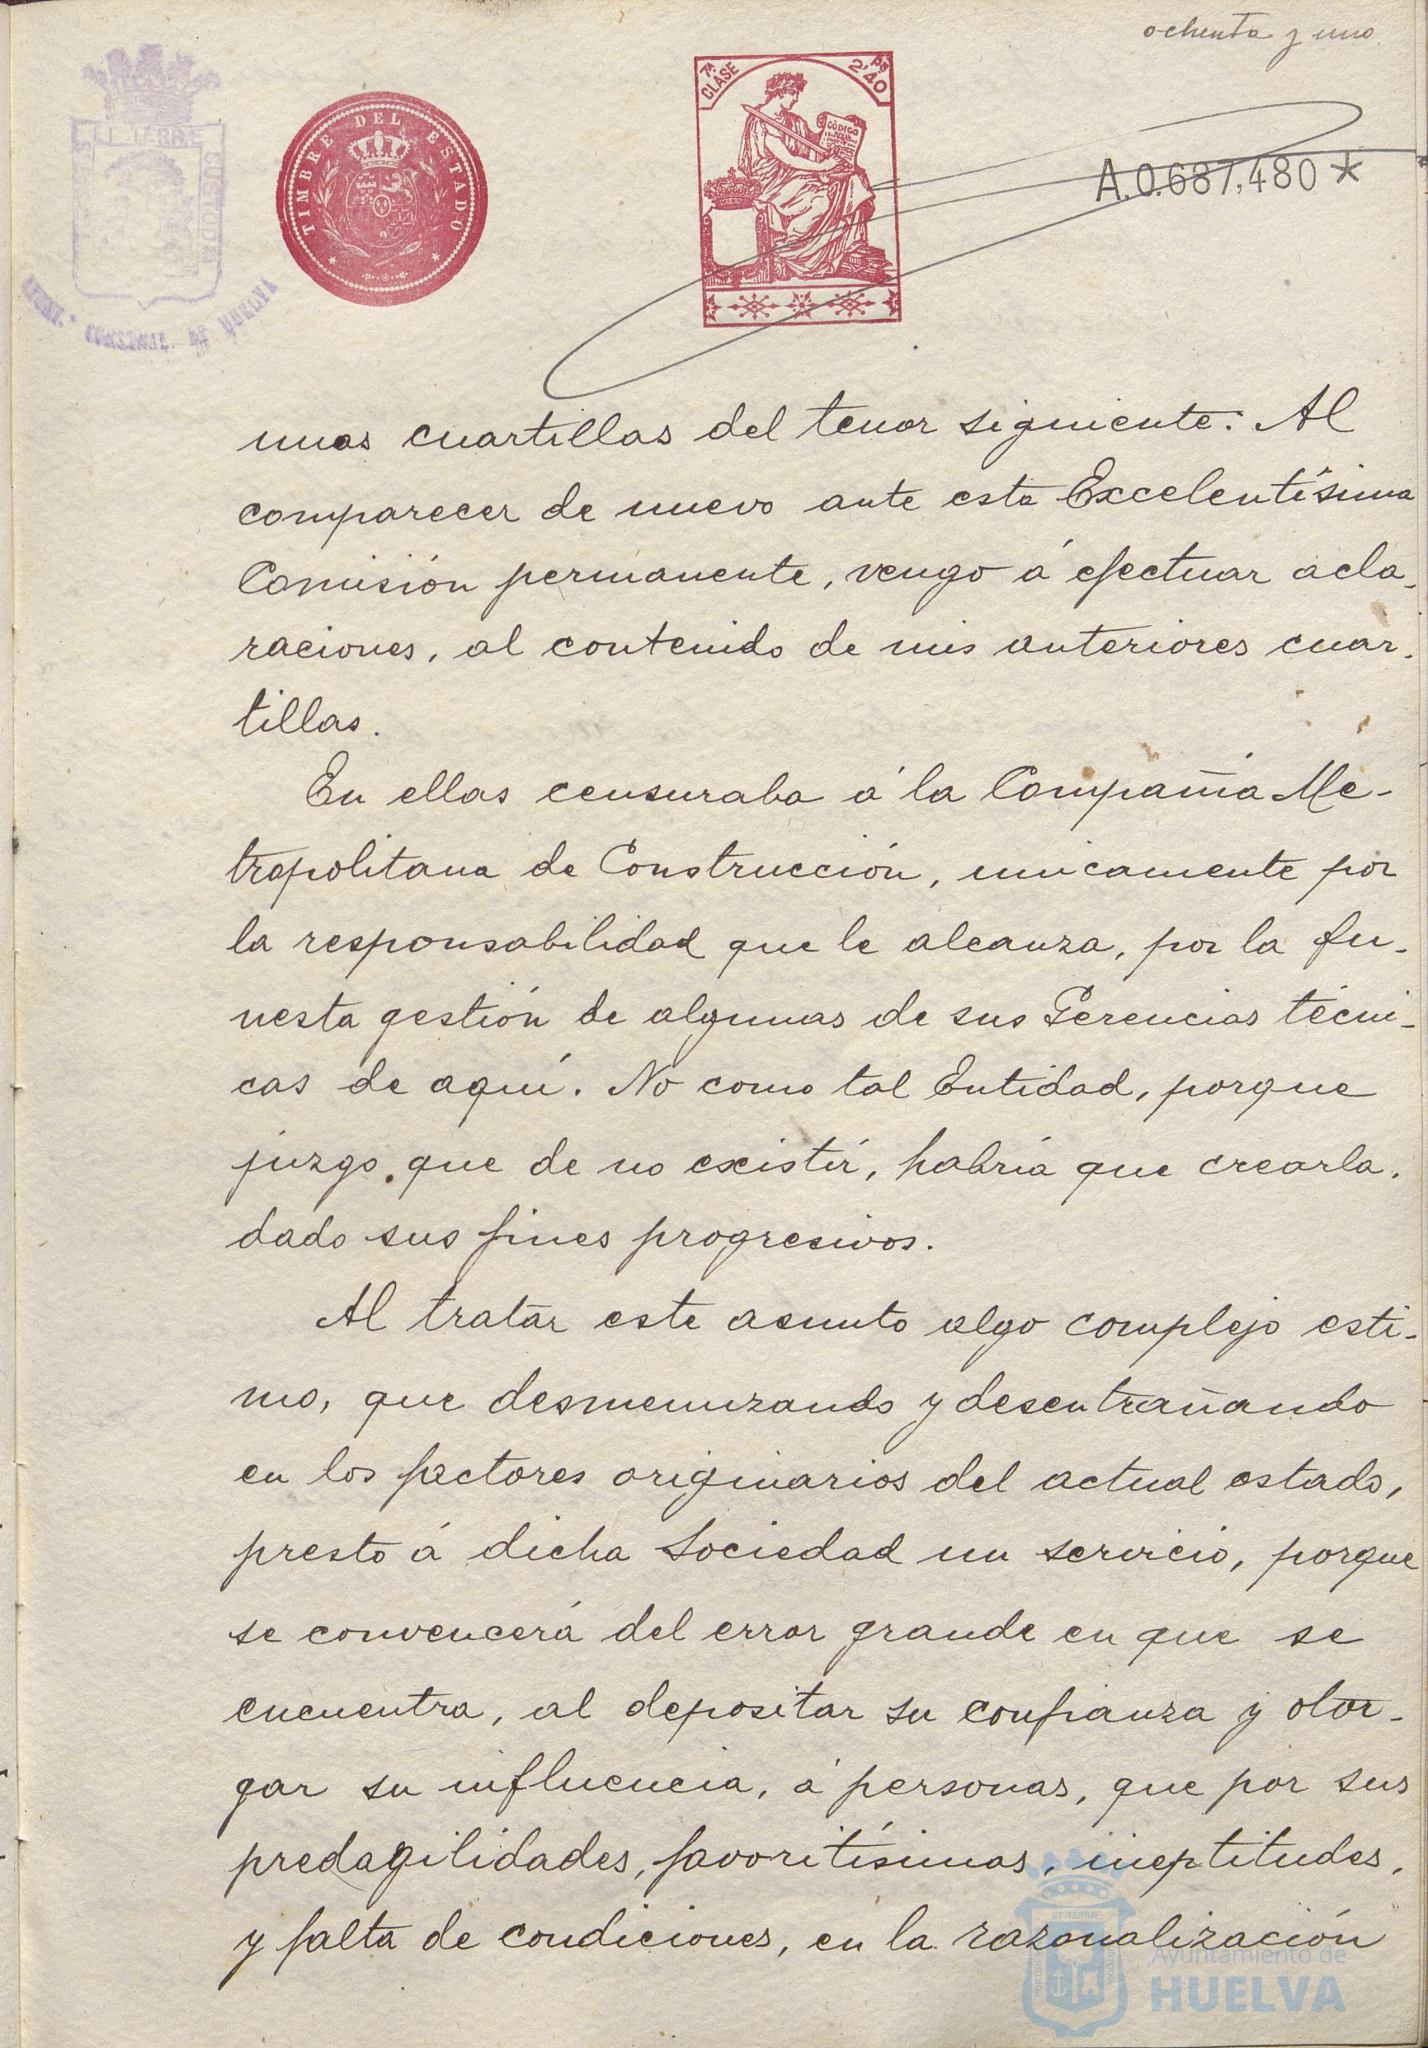 ochenta y uno
7ª CLASE
2'40 Pˢ
CÓDIGO
TIMBRE DEL ESTADO
ET TERRÆ
CUSTODIA
A.0.687,480*
unas cuartillas del tenor siguiente: Al
comparecer de nuevo ante esta Excelentísima
Comisión permanente, vengo á efectuar acla-
raciones, al contenido de mis anteriores cuar-
tillas.
En ellas censuraba á la Compañía Me-
tropolitana de Construcción, unicamente por
la responsabilidad que le alcanza, por la fu-
nesta gestión de algunas de sus Gerencias técni-
cas de aquí. No como tal Entidad, porque
juzgo que de no existir, habría que crearla,
dado sus fines progresivos.
Al tratar este asunto algo complejo esti-
mo, que desmenuzando y desentrañando
en los factores originarios del actual estado,
presto á dicha Sociedad un servicio, porque
se convencerá del error grande en que se
encuentra, al depositar su confianza y otor-
gar su influencia, á personas, que por sus
predagilidades, favoritísimas, ineptitudes,
y falta de condiciones, en la razonalización
Ayuntamiento de
HUELVA